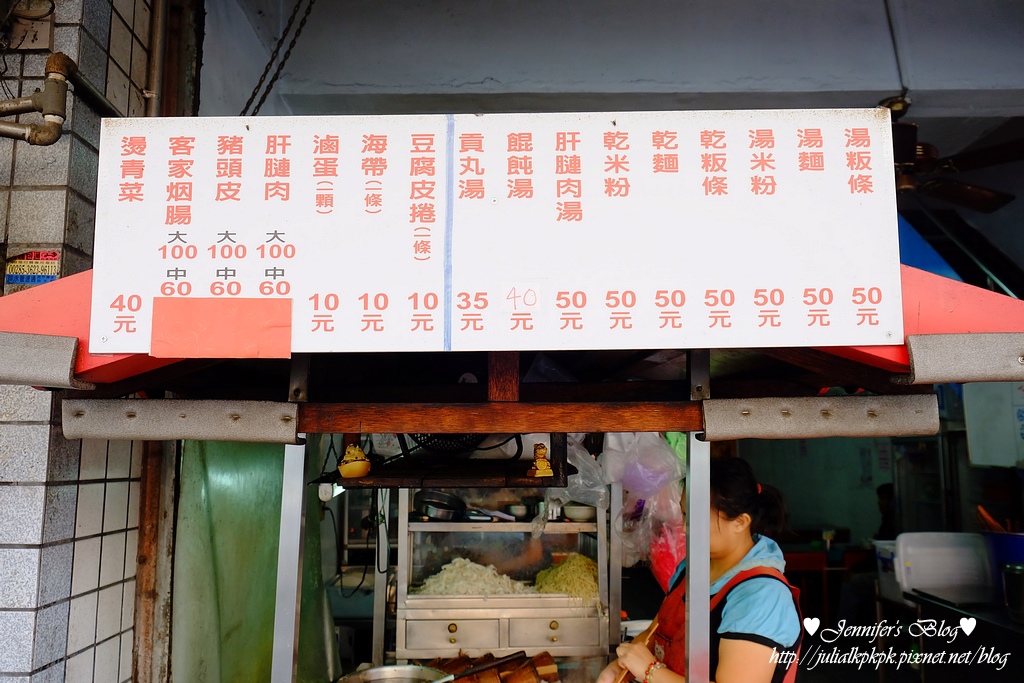 湯粄條
50元
湯麵
50元
湯米粉
50元
乾粄條
50元
乾麵
50元
乾米粉
50元
肝膁肉湯
50元
餛飩湯
40元
貢丸湯
35元
豆腐皮捲(一條)
10元
海帶(一條)
10元
滷蛋(一顆)
10元
肝膁肉
大100
中60
豬頭皮
大100
中60
客家烟腸
大100
中60
燙青菜
40元
Jennifer's Blog
http://julialkpkpk.pixnet.net/blog